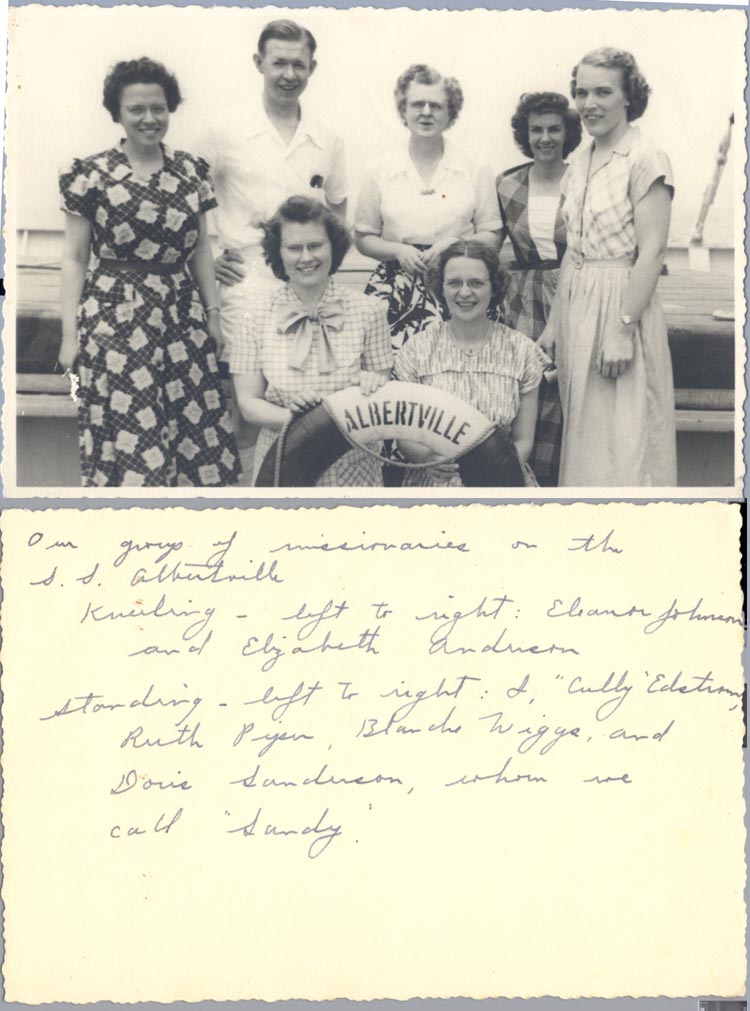 ALBERTVILLE
Our group of missionaries on the
S. S. Albertville
Kneeling - left to right: Eleanor Johnson
and Elizabeth Anderson
Standing - left to right: I, "Cully" Edstrom,
Ruth Piper, Blanche Wiggs, and
Doris Sanderson, whom we
call "Sandy".